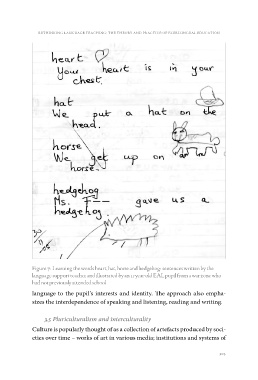 RETHINKING LANGUAGE TEACHING: THE THEORY AND PRACTICE OF PLURILINGUAL EDUCATION
heart
Your heart is in your
chest.
hat
We put a hat on the
head.
horse
We get up on
horse.
hedgehog
Ms. F gave us a
hedgehog
Figure 7: Learning the words heart, hat, horse and hedgehog: sentences written by the
language support teacher and illustrated by an 11-year-old EAL pupil from a war zone who
had not previously attended school
language to the pupil's interests and identity. The approach also empha-
sizes the interdependence of speaking and listening, reading and writing.
3.5 Pluriculturalism and interculturality
Culture is popularly thought of as a collection of artefacts produced by soci-
eties over time – works of art in various media; institutions and systems of